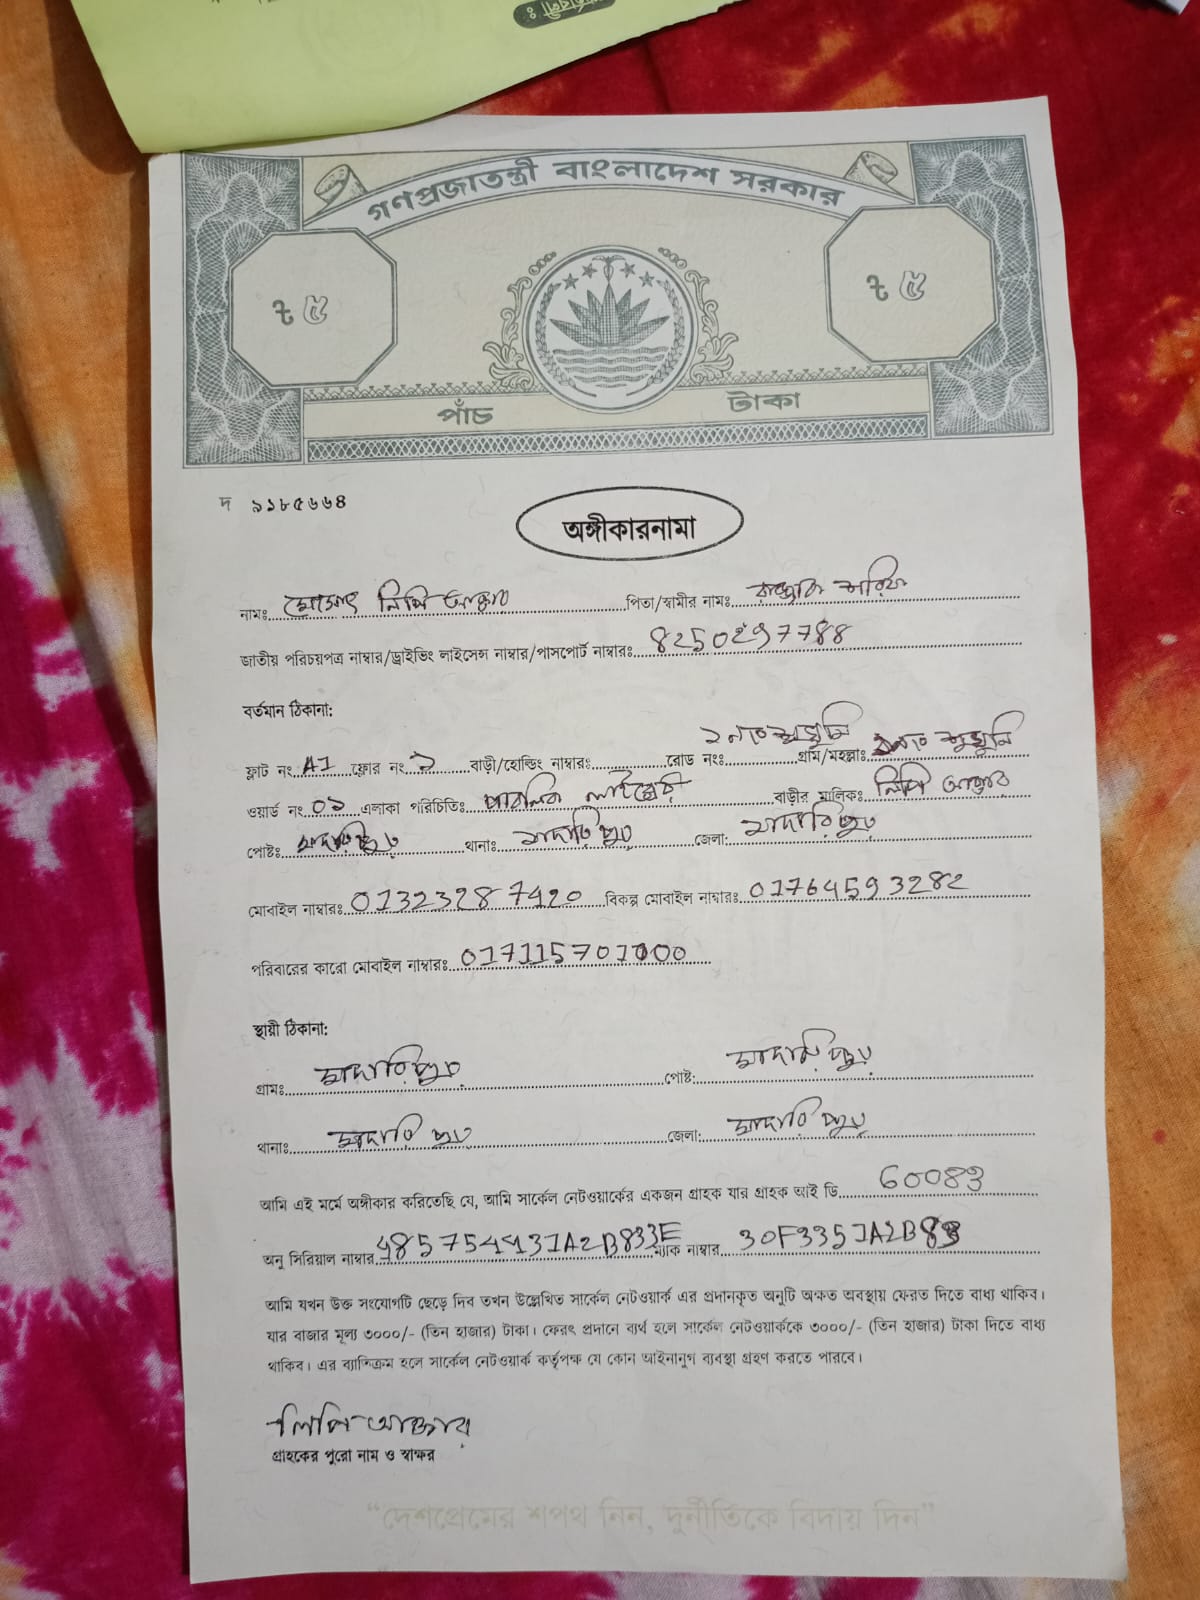 গণপ্রজাতন্ত্রী বাংলাদেশ সরকার
৳ ৫
৳ ৫
পাঁচ টাকা
দ ৯১৮৫৬৬৪
অঙ্গীকারনামা
নামঃ মোসাঃ লিপি আক্তার পিতা/স্বামীর নামঃ
জাতীয় পরিচয়পত্র নাম্বার/ড্রাইভিং লাইসেন্স নাম্বার/পাসপোর্ট নাম্বারঃ 8250297788
বর্তমান ঠিকানা:
ফ্লাট নং A1 ফ্লোর নং ১ বাড়ী/হোল্ডিং নাম্বারঃ রোড নংঃ গ্রাম/মহল্লাঃ
ওয়ার্ড নং ০১ এলাকা পরিচিতিঃ পাবলিক লাইব্রেরী বাড়ীর মালিকঃ লিপি আক্তার
পোষ্টঃ মাদারিপুর থানাঃ মাদারিপুর জেলা: মাদারিপুর
মোবাইল নাম্বারঃ 01323287420 বিকল্প মোবাইল নাম্বারঃ 01764593282
পরিবারের কারো মোবাইল নাম্বারঃ
স্থায়ী ঠিকানা:
গ্রামঃ মাদারিপুর পোষ্ট: মাদারিপুর
থানাঃ মাদারিপুর জেলা: মাদারিপুর
আমি এই মর্মে অঙ্গীকার করিতেছি যে, আমি সার্কেল নেটওয়ার্কের একজন গ্রাহক যার গ্রাহক আই ডি 60083
অনু সিরিয়াল নাম্বার ম্যাক নাম্বার
আমি যখন উক্ত সংযোগটি ছেড়ে দিব তখন উল্লেখিত সার্কেল নেটওয়ার্ক এর প্রদানকৃত অনুটি অক্ষত অবস্থায় ফেরত দিতে বাধ্য থাকিব।
যার বাজার মূল্য ৩০০০/- (তিন হাজার) টাকা। ফেরৎ প্রদানে ব্যর্থ হলে সার্কেল নেটওয়ার্ককে ৩০০০/- (তিন হাজার) টাকা দিতে বাধ্য
থাকিব। এর ব্যতিক্রম হলে সার্কেল নেটওয়ার্ক কর্তৃপক্ষ যে কোন আইনানুগ ব্যবস্থা গ্রহণ করতে পারবে।
লিপি আক্তার
গ্রাহকের পুরো নাম ও স্বাক্ষর
“দেশপ্রেমের শপথ নিন, দুর্নীতিকে বিদায় দিন”